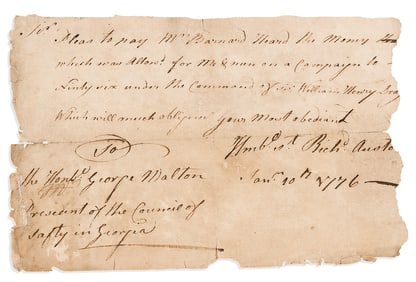 Sir
Pleas to pay Mr Barnard Heard the Money
which was Allowd for Me & men on a Campaign to
Ninty six under the Command of Sir William Henry
Which will much oblige your most obediant
Hmble St Richd Austo
To
the Honble George Walton
Janr 10th 1776
President of the Council of
Safty in Georgia